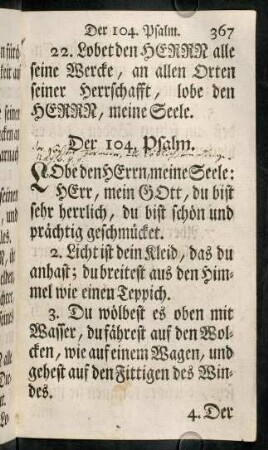 Der 104. Psalm. 367
22. Lobet den HERRN alle
seine Wercke, an allen Orten
seiner Herrschafft, lobe den
HERRN, meine Seele.
Der 104. Psalm.
LObe den HErrn, meine Seele:
HErr, mein GOtt, du bist
sehr herrlich, du bist schön und
prächtig geschmücket.
2. Licht ist dein Kleid, das du
anhast; du breitest aus den Him-
mel wie einen Teppich.
3. Du wölbest es oben mit
Wasser, du fährest auf den Wol-
cken, wie auf einem Wagen, und
gehest auf den Fittigen des Win-
des.
4. Der